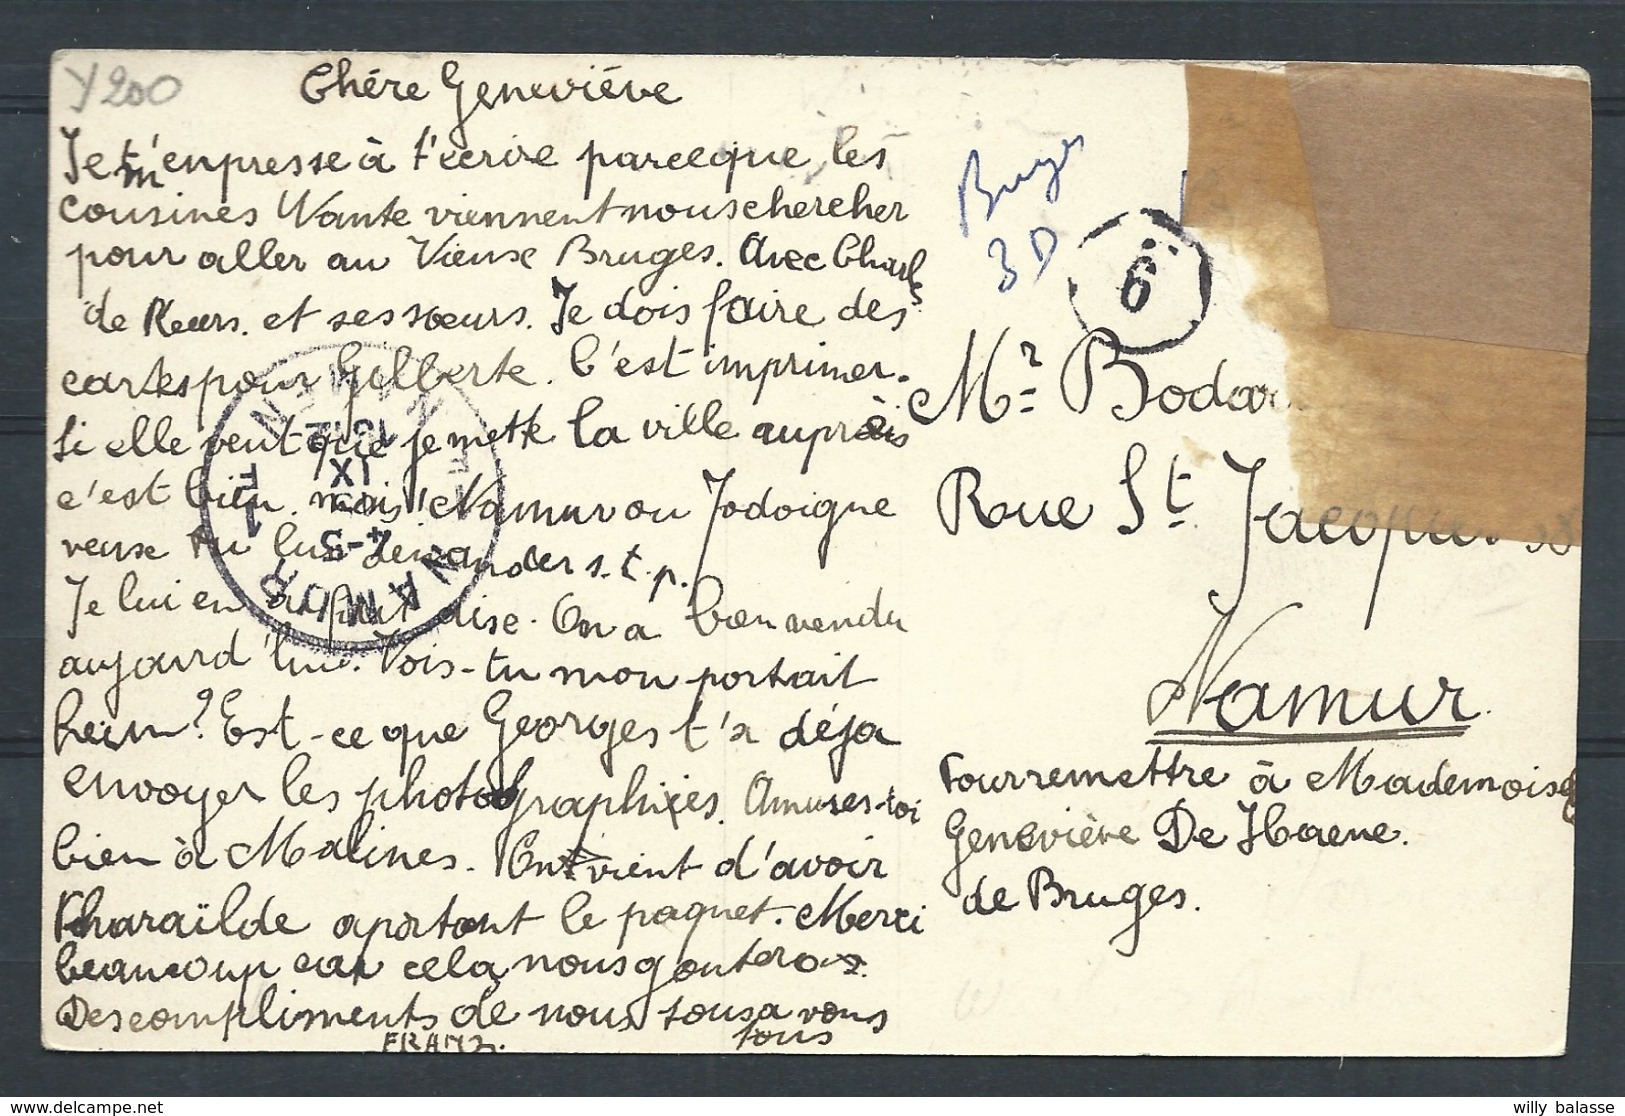 y 200
Chére Geneviéve
Je m'enpresse à t'ecrire parceque les
cousines Wante viennent nous chercher
pour aller au Vieux Bruges. Avec Charles
de et ses sœurs. Je dois faire des
cartes pour Gilberte. C'est imprimer.
Si elle veut que je mette la ville auprès
c'est bien. mais Namur ou Jodoigne
veux tu lui demander s.t.p.
Je lui en dise. On a bien vendu
aujourd'hui. Vois-tu mon portait
hein? Est-ce que Georges t'a déja
envoyer les photographies. Amuses-toi
bien à Malines. On vient d'avoir
Pharaïlde aportant le paquet. Merci
beaucoup car cela nous gouterons.
Des compliments de nous tous a vous
tous
FRANZ.
NAMUR
NAMEN
IX
Bruges
3D
6
Mr Bodar
Rue St. Jacques 38
Namur.
Pourremettre à Mademoiselle
Geneviève De Haene.
de Bruges.
willy balasse